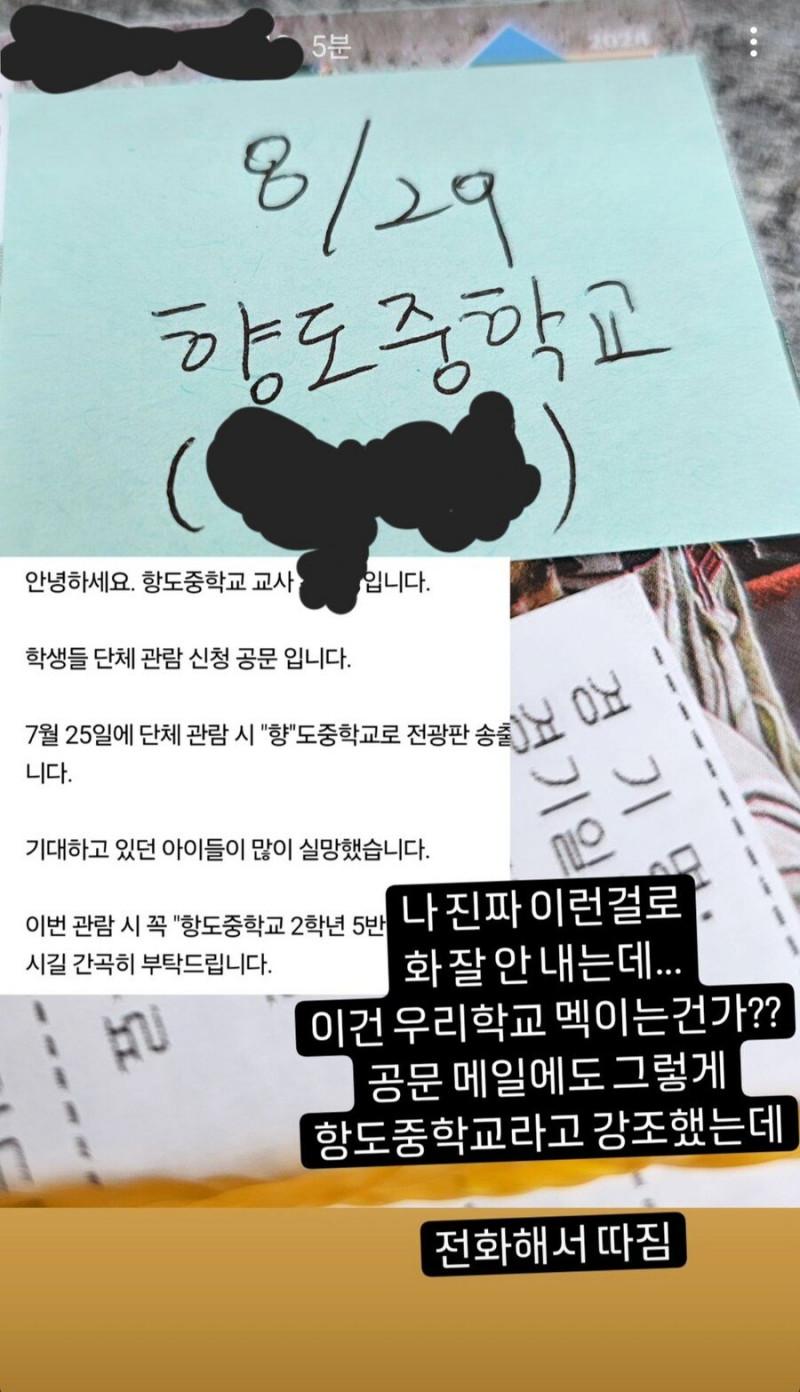 5분
2026
8/29
향도중학교
( )
안녕하세요. 항도중학교 교사 입니다.
학생들 단체 관람 신청 공문 입니다.
7월 25일에 단체 관람 시 "향"도중학교로 전광판 송출
니다.
기대하고 있던 아이들이 많이 실망했습니다.
이번 관람 시 꼭 "항도중학교 2학년 5반
시길 간곡히 부탁드립니다.
경기명:
경기일
료
나 진짜 이런걸로
화 잘 안 내는데...
이건 우리학교 멕이는건가??
공문 메일에도 그렇게
항도중학교라고 강조했는데
전화해서 따짐